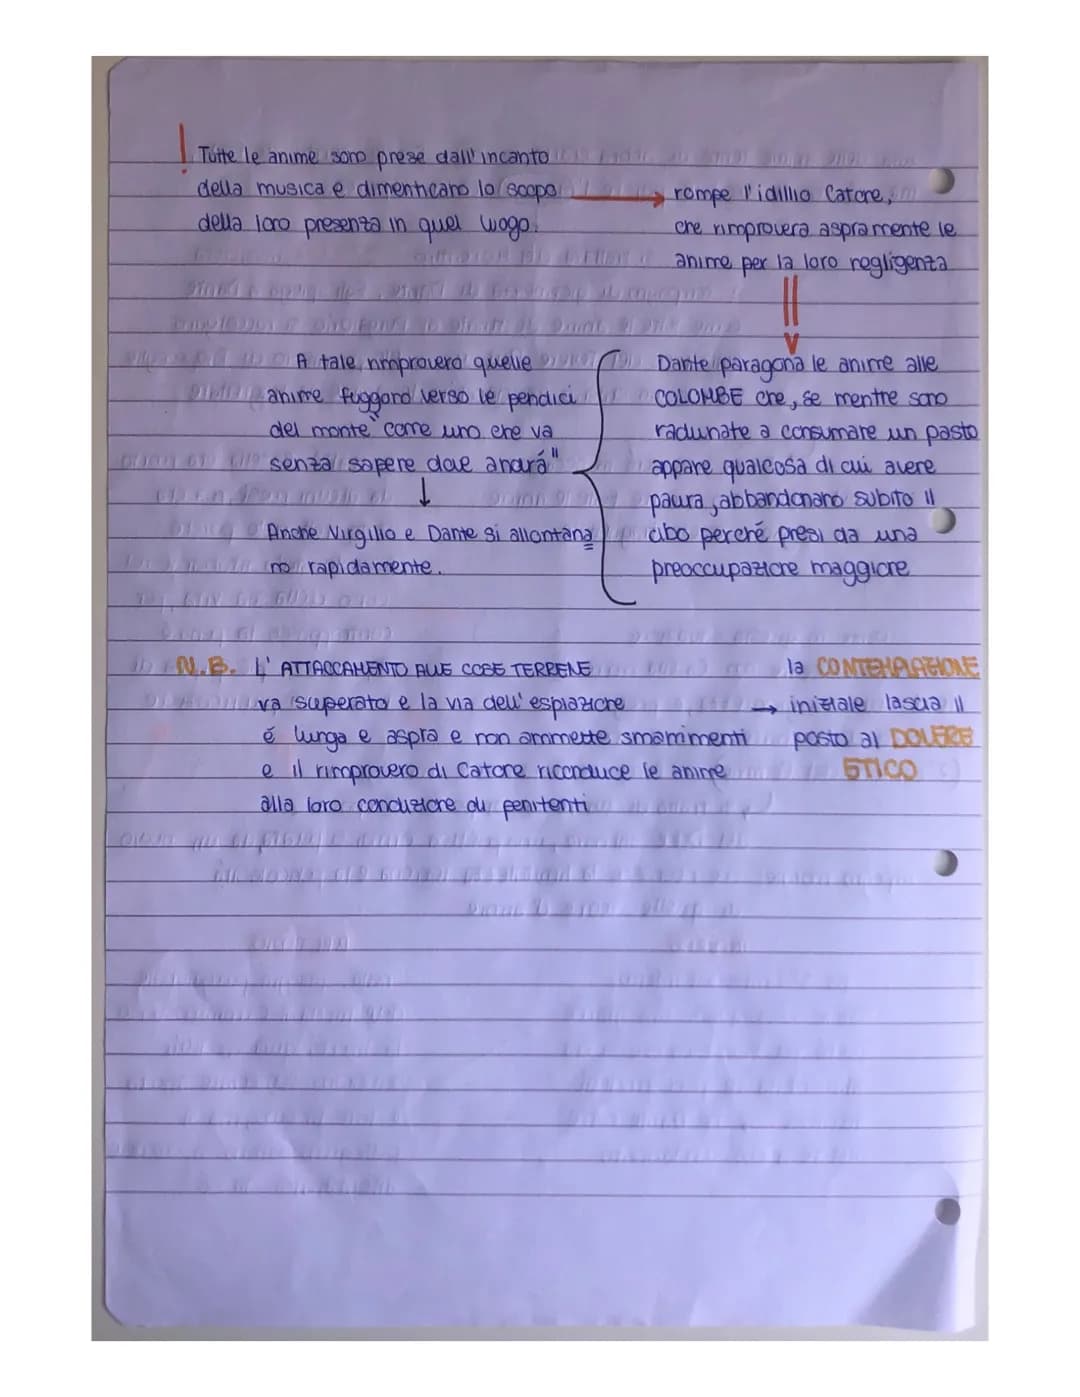 ! Tutte le anime sono prese dall'incanto
della musica e dimenticano lo scopo →
della loro presenza in quel luogo.
rompe l'idillio Catone,
che rimprovera aspramente le
anime per la loro negligenza
Dante paragona le anime alle
COLOMBE che, se mentre sono
radunate a consumare un pasto
appare qualcosa di cui avere
paura, abbandonano subito il
cibo perché presi da una
preoccupazione maggiore
A tale rimprovero quelle
anime fuggono verso le pendici
del monte "come uno che va
senza sapere dove andrá"
↓
Anche Virgilio e Dante si allontana
no rapidamente.
N.B. L'ATTACCAMENTO ALLE COSE TERRENE
va superato e la via dell'espiazione
é lunga e aspra e non ammette smarrimenti
e il rimprovero di Catone riconduce le anime
alla loro conduzione di penitenti
la CONTEMPLAZIONE
→ iniziale lascia il
posto al DOVERE
ETICO